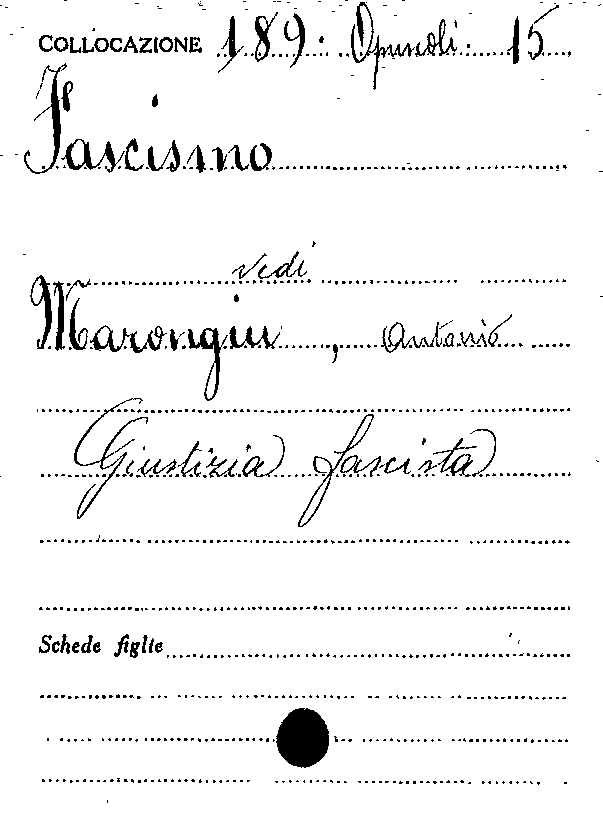 COLLOCAZIONE 189. Opuscoli. 15
Fascismo
vedi
Marongiu, Antonio
Giustizia fascista
Schede figlie